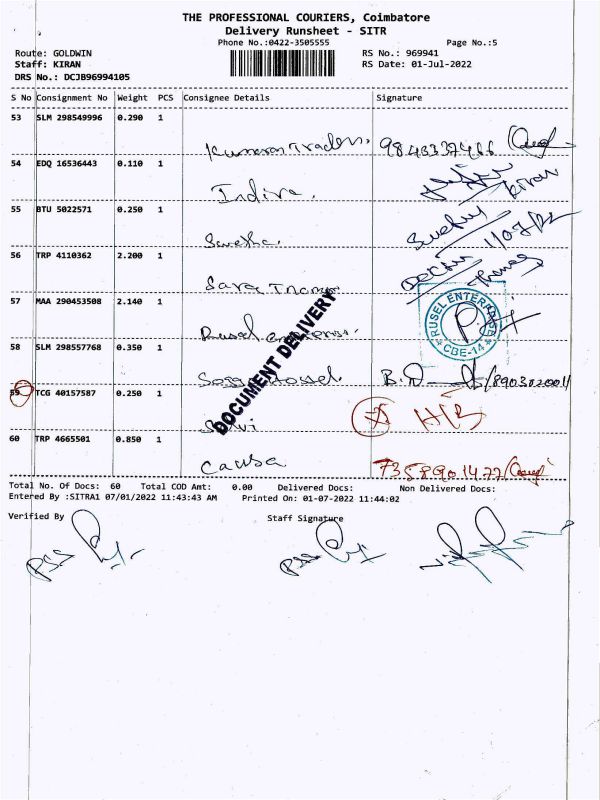 THE PROFESSIONAL COURIERS, Coimbatore
Delivery Runsheet - SITR
Phone No.:0422-3505555 Page No.:5
Route: GOLDWIN RS No.: 969941
Staff: KIRAN RS Date: 01-Jul-2022
DRS No.: DCJB96994105
S No Consignment No Weight PCS Consignee Details Signature
53 SLM 298549996 0.290 1
Kumaran Traders. 9843337466
54 EDQ 16536443 0.110 1
Indira. Kiran
55 BTU 5022571 0.250 1
Swetha. Swetha 1/07/22
56 TRP 4110362 2.200 1
Sara
57 MAA 290453508 2.140 1
Rusel enterprises. RUSEL ENTERPRISE
CBE-14
58 SLM 298557768 0.350 1
B.D 8903020011
59 TCG 40157587 0.250 1
Selvi H/B
60 TRP 4665501 0.850 1
Causa 7358901477
DOCUMENT DELIVERY
Total No. Of Docs: 60 Total COD Amt: 0.00 Delivered Docs: Non Delivered Docs:
Entered By :SITRA1 07/01/2022 11:43:43 AM Printed On: 01-07-2022 11:44:02
Verified By Staff Signature